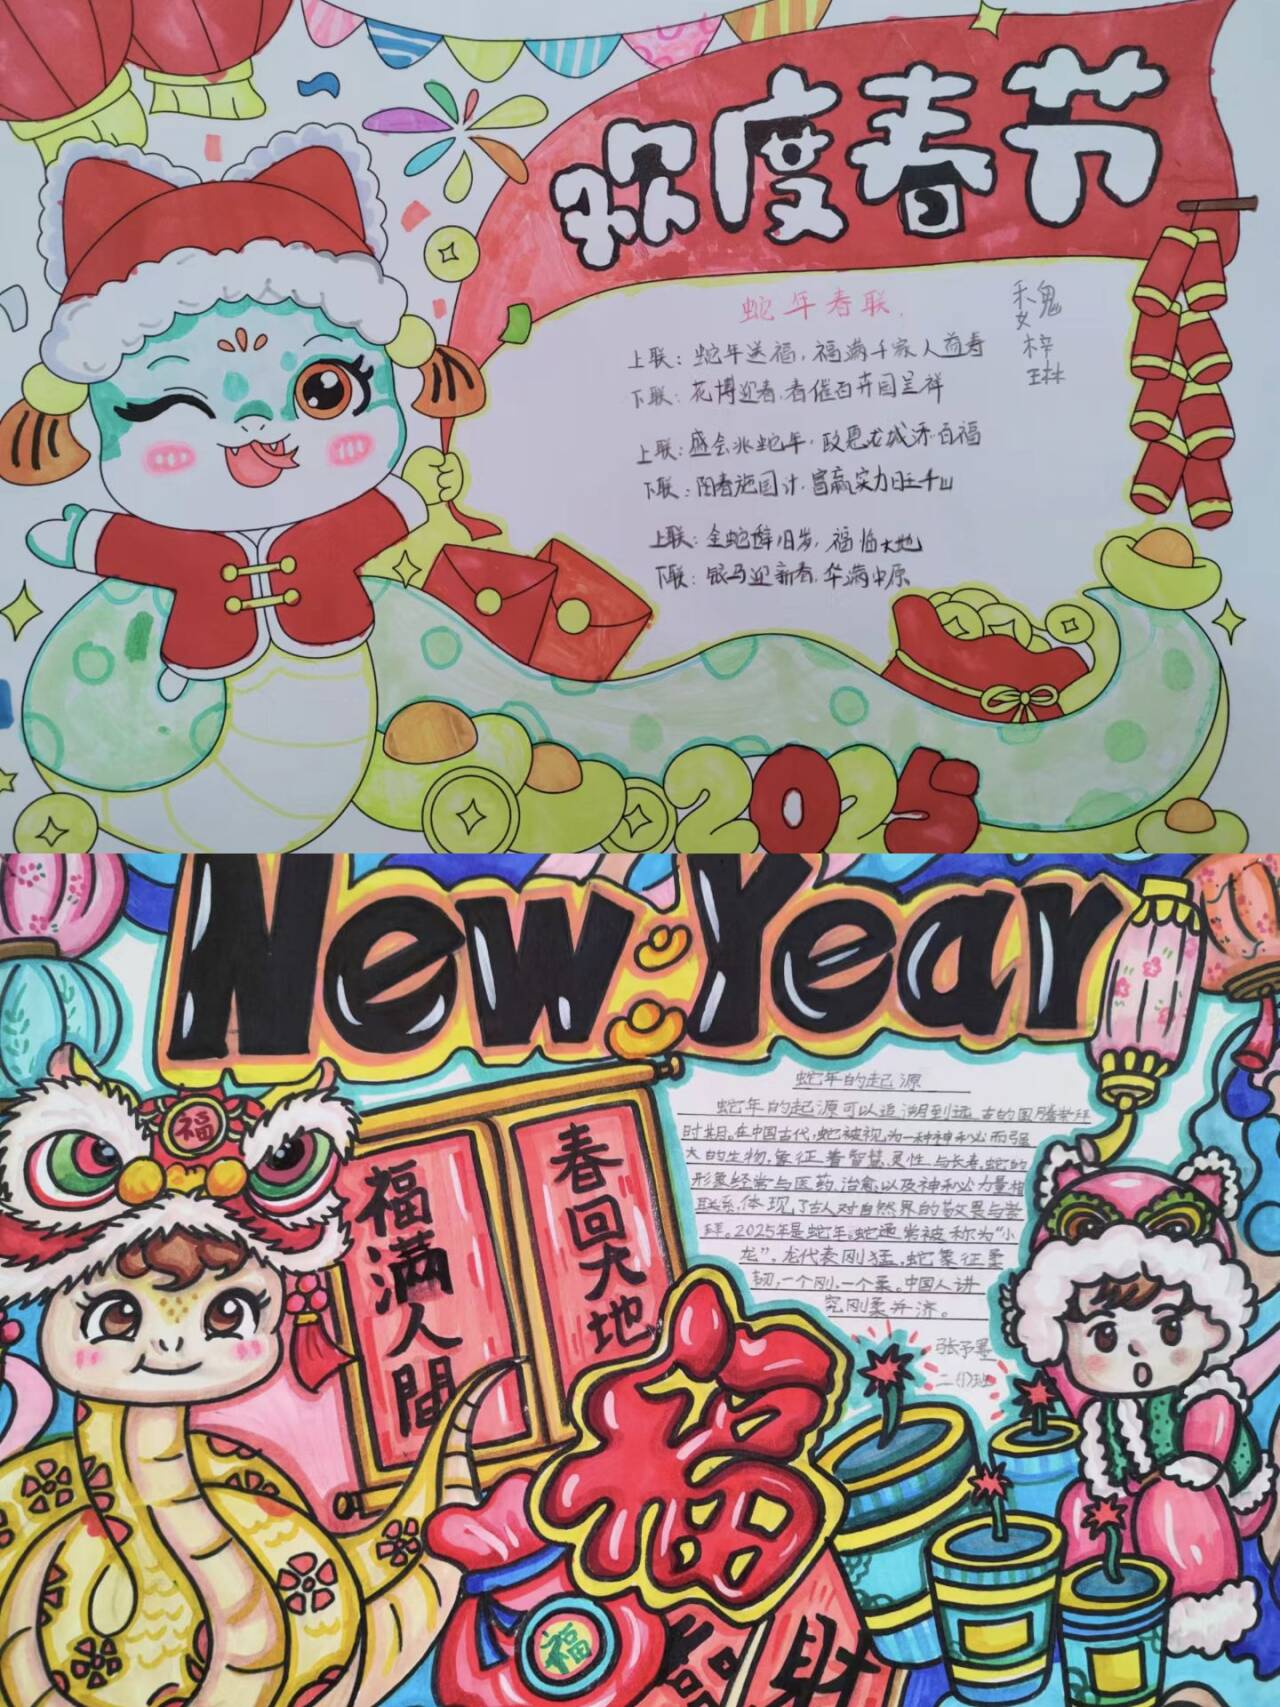 欢度春节
蛇年春联.
魏
梓
琳
上联：蛇年送福，福满千家人益寿
下联：花博迎春，春催百卉园呈祥
上联：盛会兆蛇年，政恩龙城添百福
下联：阳春施国计，富赢实力旺千山
上联：金蛇辞旧岁，福临大地
下联：银马迎新春，华满中原
2025
New Year
蛇年的起源
蛇年的起源可以追溯到远古的图腾崇拜
时期，在中国古代，蛇被视为一种神秘而强
大的生物，象征着智慧、灵性与长寿，蛇的
形象经常与医药、治愈以及神秘力量相
联系，体现了古人对自然界的敬畏与崇
拜。2025年是蛇年，蛇通常被称为“小
龙”，龙代表刚猛，蛇象征柔
韧，一个刚，一个柔。中国人讲
究刚柔并济。
张予墨
二（1）班
福
春回大地
福满人間
福
福
福
财